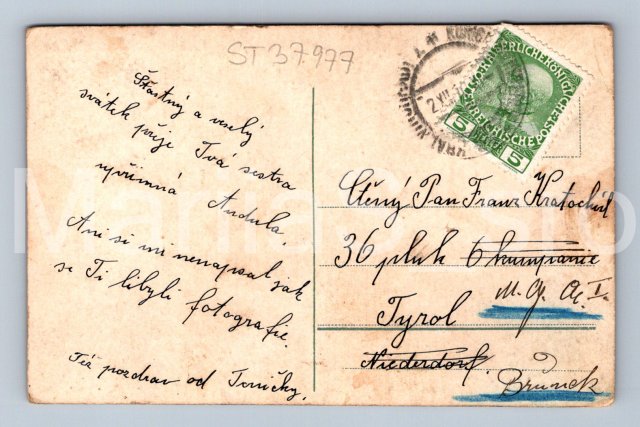 ST 37.977
Šťastný a veselý
svátek přeje Tvá sestra
upřímná Andula.
Ani si mi nenapsal jak
se Ti líbyli fotografie.
Též pozdrav od Toničky.
5 5
Ctěný Pan Franz Kratochvil
36 pluk 6 kumpanie
M. G. A. I.
Tyrol
Niederdorf.
Bruneck